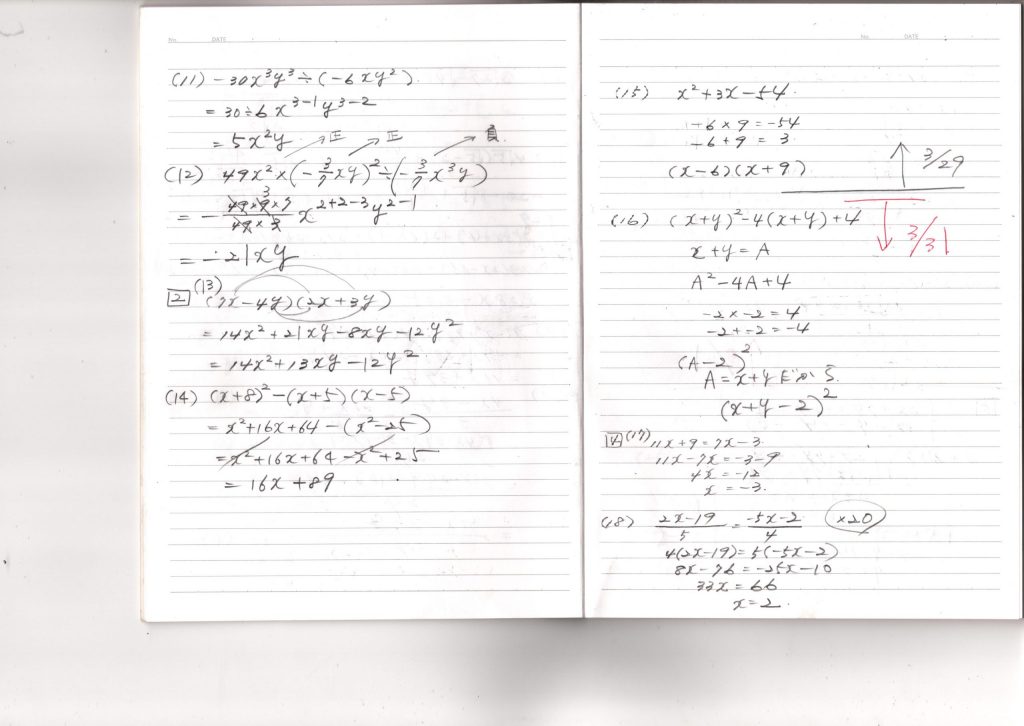 No. DATE
(11) -30x³y³÷(-6xy²)
= 30÷6 x³⁻¹y³⁻²
= 5x²y 正 正 負
(12) 49x²×(-3/7xy)²÷(-3/7x³y)
= -(49×9×7)/(49×3) x²⁺²⁻³y²⁻¹
3
= -21xy
2 (13) (7x-4y)(2x+3y)
= 14x²+21xy-8xy-12y²
= 14x²+13xy-12y²
(14) (x+8)²-(x+5)(x-5)
= x²+16x+64-(x²-25)
= x²+16x+64-x²+25
= 16x+89
No. DATE
(15) x²+3x-54
-6×9=-54
-6+9=3
(x-6)(x+9)
3/29
3/31
(16) (x+y)²-4(x+y)+4
x+y=A
A²-4A+4
-2×-2=4
-2+-2=-4
(A-2)²
A=x+yだから
(x+y-2)²
(17) 11x+9=7x-3
11x-7x=-3-9
4x=-12
x=-3.
(18) (2x-19)/5=(-5x-2)/4 ×20
4(2x-19)=5(-5x-2)
8x-76=-25x-10
33x=66
x=2.